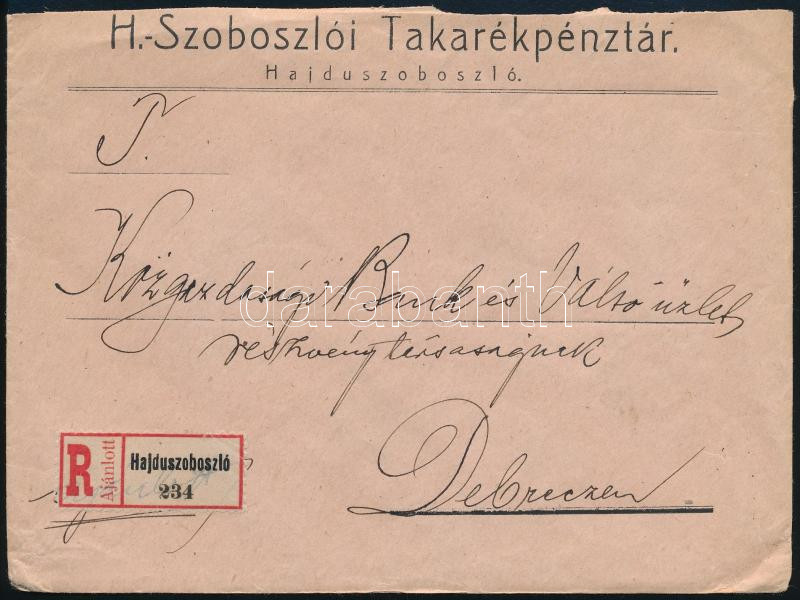 H.-Szoboszlói Takarékpénztár.
Hajduszoboszló.
T.
Közgazdasági Bank és Váltó üzlet
részvénytársaságnak
darabanth
R Ajánlott Hajduszoboszló
234
Debreczen